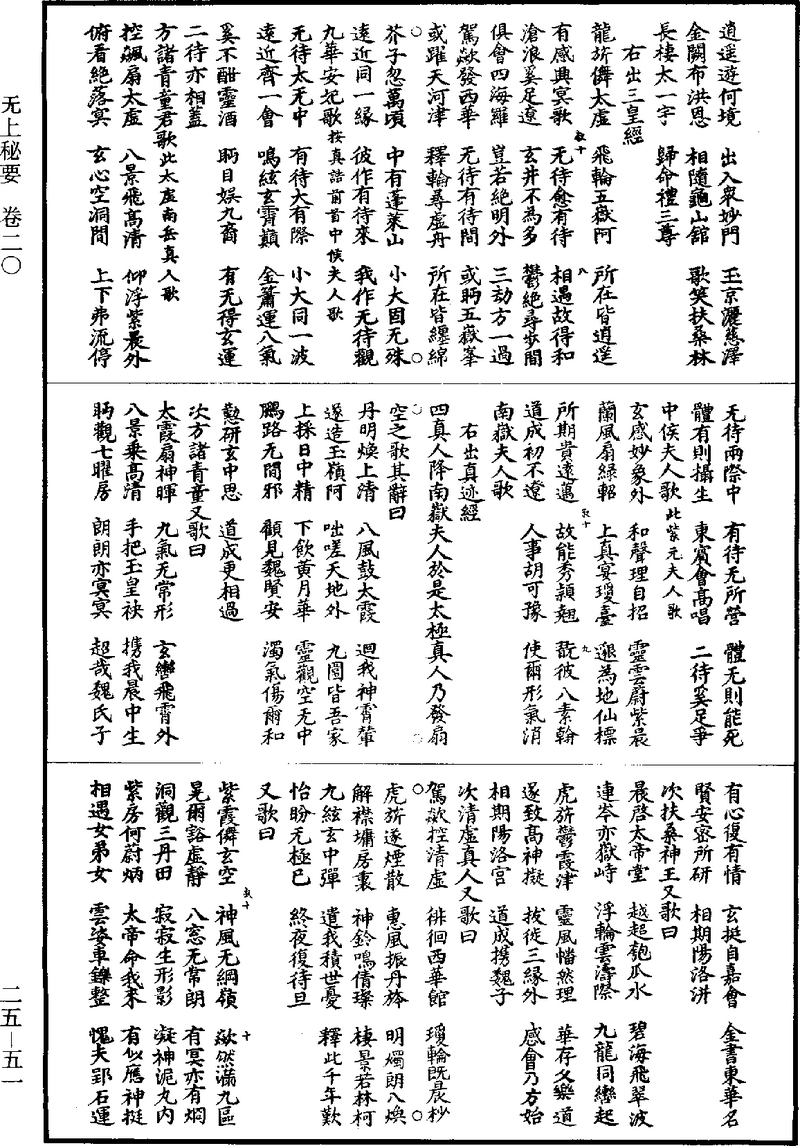 无上秘要 卷二〇
二五—五一
逍遥遊何境 出入衆妙門 玉京灑慈澤
金闕布洪恩 相隨龜山館 歌笑扶桑林
長棲太一宇 歸命禮三尊
右出三皇經
龍旂儛太虛 飛輪五嶽阿 所在皆逍遥
有感興冥歌 无待愈有待 相遇故得和
滄浪奚足遼 玄井不為多 鬱絕尋步間
俱會四海羅 豈若絕明外 三劫方一過
駕欻發西華 无待有待間 或眄五嶽峯
或躍天河津 釋輪尋虛舟 所在皆纏綿
芥子忽萬頃 中有蓬萊山 小大固无殊
遠近同一緣 彼作有待來 我作无待觀
九華安妃歌按真誥前首中侯夫人歌
无待太无中 有待大有際 小大同一波
遠近齊一會 鳴絃玄霄巔 金簫運八氣
奚不酣靈酒 眄目娱九裔 有无得玄運
二待亦相蓋
方諸青童君歌此太虛南岳真人歌
控飆扇太虛 八景飛高清 仰浮紫晨外
俯看絕落冥 玄心空洞間 上下弗流停
无待兩際中 有待无所營 體无則能死
體有則攝生 東賓會高唱 二待奚足爭
中侯夫人歌此紫元夫人歌
玄感妙象外 和聲理自招 靈雲蔚紫晨
蘭風扇綠軺 上真宴瓊臺 邈為地仙標
所期貴遠邁 故能秀穎翹 翫彼八素翰
道成初不遼 人事胡可豫 使爾形氣消
南嶽夫人歌
右出真迹經
四真人降南嶽夫人於是太極真人乃發扇
空之歌其辭曰
丹明煥上清 八風鼓太霞 迴我神霄輦
遂造玉嶺阿 咄嗟天地外 九圍皆吾家
上採日中精 下飲黄月華 靈觀空无中
鵬路无間邪 顧見魏賢安 濁氣傷爾和
懃研玄中思 道成更相過
次方諸青童又歌曰
太霞扇神暉 九氣无常形 玄轡飛霄外
八景乘高清 手把玉皇袂 携我晨中生
眄觀七曜房 朗朗亦冥冥 超哉魏氏子
有心復有情 玄挺自嘉會 金書東華名
賢安密所研 相期陽洛汫
次扶桑神王又歌曰
晨啓太帝堂 越超匏瓜水 碧海飛翠波
連岑亦嶽峙 浮輪雲濤際 九龍同轡起
虎旂鬱霞津 靈風幡然理 華存久樂道
遂致高神擬 拔徙三緣外 感會乃方始
相期陽洛宫 道成携魏子
次清虛真人又歌曰
駕欻控清虛 徘徊西華館 瓊輪既晨杪
虎旂遂煙散 惠風振丹旍 明燭朗八煥
解襟墉房裏 神鈴鳴倩璨 棲景若林柯
九絃玄中彈 遺我積世憂 釋此千年歎
怡盼无極已 終夜復待旦
又歌曰
紫霞儛玄空 神風无綱嶺 欻然滿九區
晃爾豁虛靜 八窓无常朗 有冥亦有炯
洞觀三丹田 寂寂生形影 凝神泥丸内
紫房何蔚炳 太帝命我來 有似應神挺
相遇女弟女 雲姿車鑠整 愧夫郢石運